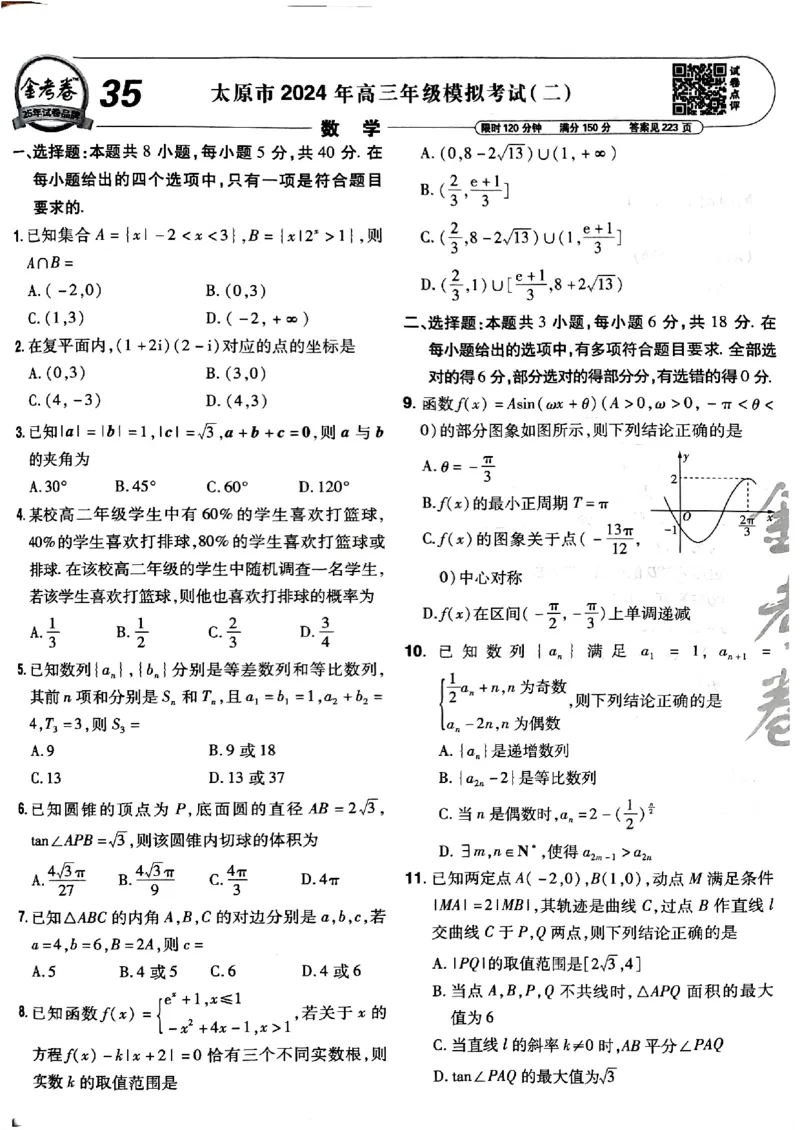 金考卷
25年试卷品牌
35
太原市2024年高三年级模拟考试(二)
试卷点评
数 学
限时120分钟 满分150分 答案见223页
一、选择题:本题共8小题,每小题5分,共40分. 在
每小题给出的四个选项中,只有一项是符合题目
要求的.
1.已知集合A={x|-2<x<3},B={x|2ˣ>1},则
A∩B=
A.(-2,0) B.(0,3)
C.(1,3) D.(-2,+∞)
2.在复平面内,(1+2i)(2-i)对应的点的坐标是
A.(0,3) B.(3,0)
C.(4,-3) D.(4,3)
3.已知|a|=|b|=1,|c|=√3,a+b+c=0,则a与b
的夹角为
A.30° B.45° C.60° D.120°
4.某校高二年级学生中有60%的学生喜欢打篮球,
40%的学生喜欢打排球,80%的学生喜欢打篮球或
排球. 在该校高二年级的学生中随机调查一名学生,
若该学生喜欢打篮球,则他也喜欢打排球的概率为
A.1/3 B.1/2 C.2/3 D.3/4
5.已知数列{aₙ},{bₙ}分别是等差数列和等比数列,
其前n项和分别是Sₙ和Tₙ,且a₁=b₁=1,a₂+b₂=
4,T₃=3,则S₃=
A.9 B.9或18
C.13 D.13或37
6.已知圆锥的顶点为P,底面圆的直径AB=2√3,
tan∠APB=√3,则该圆锥内切球的体积为
A.4√3π/27 B.4√3π/9 C.4π/3 D.4π
7.已知△ABC的内角A,B,C的对边分别是a,b,c,若
a=4,b=6,B=2A,则c=
A.5 B.4或5 C.6 D.4或6
8.已知函数f(x)={eˣ+1,x≤1
-x²+4x-1,x>1,若关于x的
方程f(x)-k|x+2|=0恰有三个不同实数根,则
实数k的取值范围是
A.(0,8-2√13)∪(1,+∞)
B.(2/3,(e+1)/3]
C.(2/3,8-2√13)∪(1,(e+1)/3]
D.(2/3,1)∪[(e+1)/3,8+2√13)
二、选择题:本题共3小题,每小题6分,共18分. 在
每小题给出的选项中,有多项符合题目要求. 全部选
对的得6分,部分选对的得部分分,有选错的得0分.
9.函数f(x)=Asin(ωx+θ)(A>0,ω>0,-π<θ<
0)的部分图象如图所示,则下列结论正确的是
A.θ=-π/3
B.f(x)的最小正周期T=π
C.f(x)的图象关于点(-13π/12,
0)中心对称
D.f(x)在区间(-π/2,-π/3)上单调递减
y
2
O
2π/3
x
-1
10.已知数列{aₙ}满足a₁=1,aₙ₊₁=
{1/2aₙ+n,n为奇数
aₙ-2n,n为偶数,则下列结论正确的是
A.{aₙ}是递增数列
B.{a₂ₙ-2}是等比数列
C.当n是偶数时,aₙ=2-(1/2)^(n/2)
D.∃m,n∈N*,使得a₂ₘ₋₁>a₂ₙ
11.已知两定点A(-2,0),B(1,0),动点M满足条件
|MA|=2|MB|,其轨迹是曲线C,过点B作直线l
交曲线C于P,Q两点,则下列结论正确的是
A.|PQ|的取值范围是[2√3,4]
B.当点A,B,P,Q不共线时,△APQ面积的最大
值为6
C.当直线l的斜率k≠0时,AB平分∠PAQ
D.tan∠PAQ的最大值为√3
金考卷